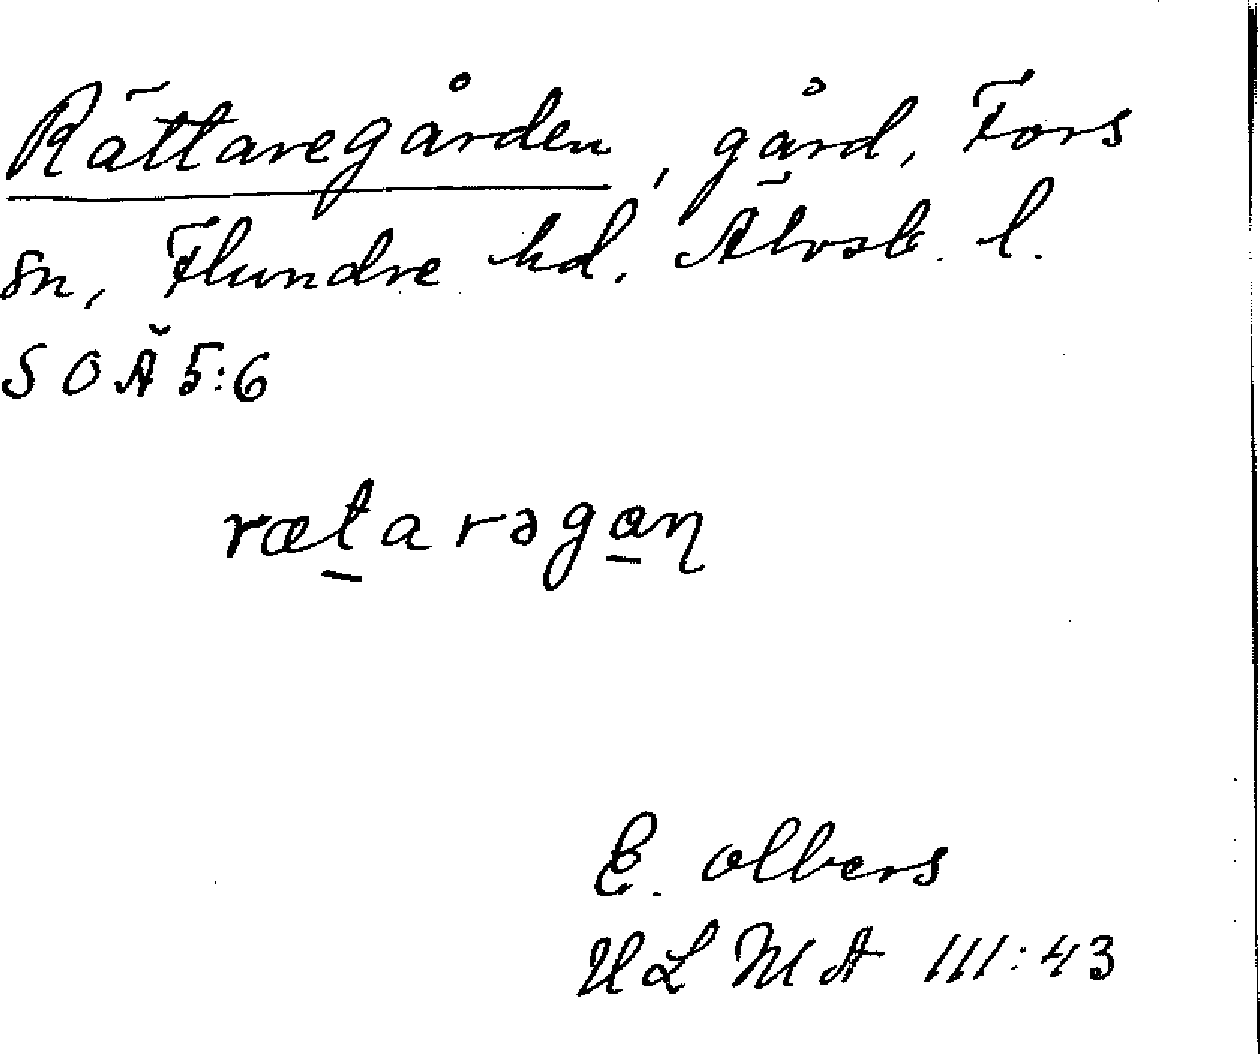 Rättaregården, gård, Fors
sn, Flundre hd. Älvsb. l.
SOÄ 5:6
rætaragan
E. olbers
ULMA 111:43